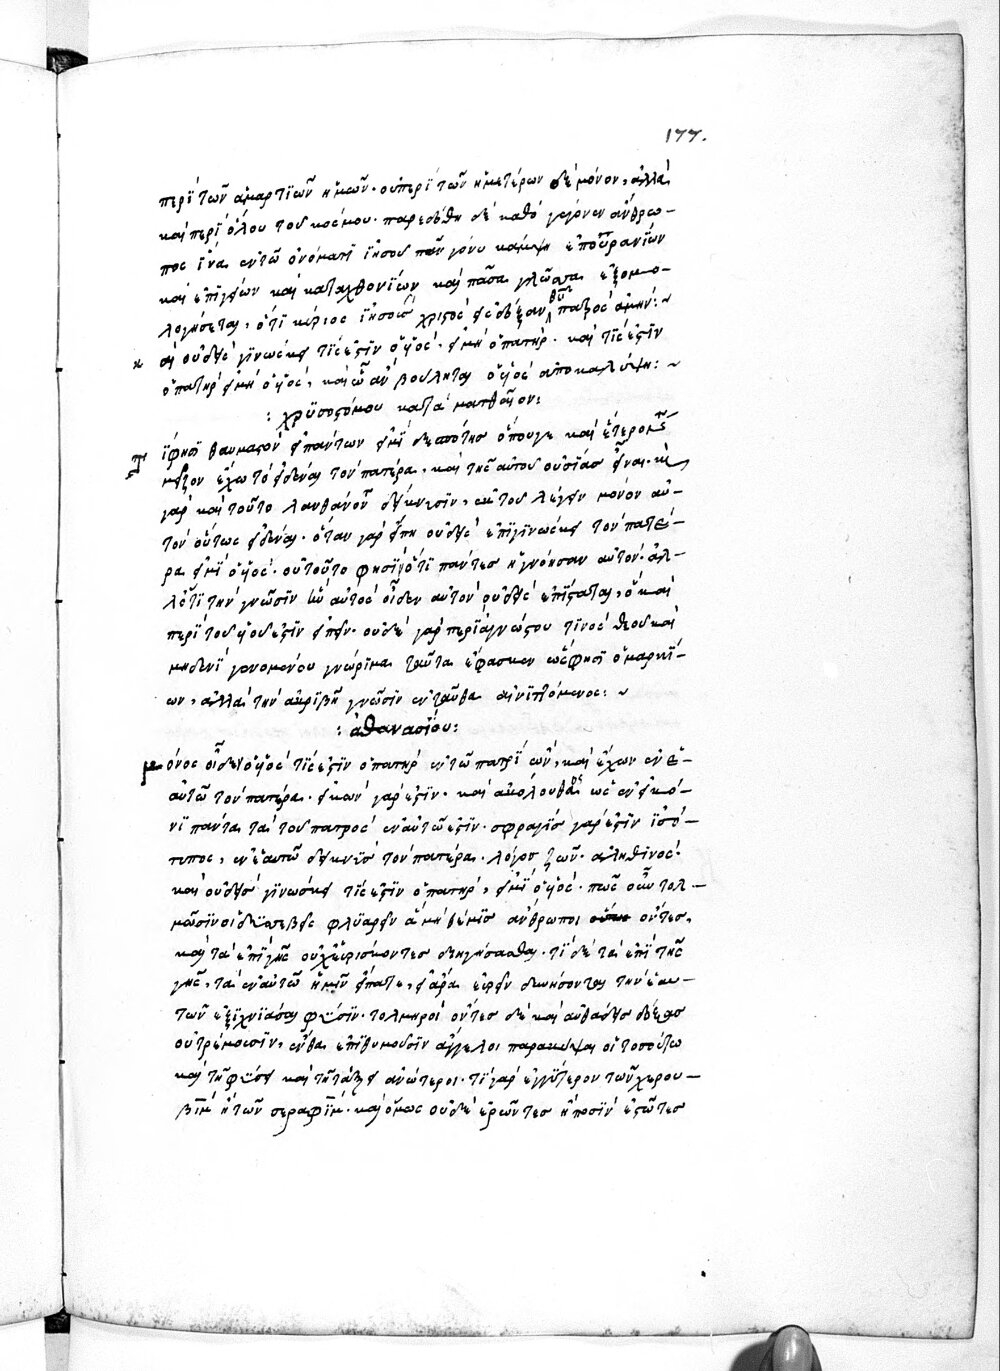 177.
περὶ τῶν ἁμαρτιῶν ἡμῶν· οὐ περὶ τῶν ἡμετέρων δὲ μόνον, ἀλλὰ
καὶ περὶ ὅλου τοῦ κόσμου· παρεδόθη δὲ καθὸ γέγονεν ἄνθρω-
πος ἵνα ἐν τῷ ὀνόματι ἰησοῦ πᾶν γόνυ κάμψη ἐπουρανίων
καὶ ἐπιγείων καὶ καταχθονίων καὶ πᾶσα γλῶσσα ἐξομο-
λογήσεται, ὅτι κύριος ἰησοῦς χριστὸς εἰς δόξαν θῦ πατρὸς ἀμήν:~
καὶ οὐδεὶς γινώσκει τίς ἐστιν ὁ υἱὸς, εἰ μὴ ὁ πατήρ· καὶ τίς ἐστιν
ὁ πατὴρ εἰ μὴ ὁ υἱὸς, καὶ ᾧ ἂν βούληται ὁ υἱὸς ἀποκαλύψαι:~
: χρυσοστόμου κατὰ ματθαῖον:
τί φησι θαυμαστὸν εἰ πάντων εἰμὶ δεσπότης ὅπουγε καὶ ἕτερον
μεῖζον ἔχω τὸ εἰδέναι τὸν πατέρα, καὶ τῆς αὐτοῦ οὐσίας εἶναι· καὶ
γὰρ καὶ τοῦτο λανθάνον δείκνυσιν, ἐκ τοῦ λέγειν μόνον αὐ-
τὸν οὕτως εἰδέναι· ὅταν γὰρ εἴπη οὐδεὶς ἐπιγινώσκει τὸν πατέ-
ρα εἰ μὴ ὁ υἱός· οὐ τοῦτο φησὶν ὅτι πάντες ἠγνόησαν αὐτόν· ἀλ-
λ' ὅτι τὴν γνῶσιν ἣν αὐτὸς οἶδεν αὐτὸν οὐδεὶς ἐπίσταται, ὃ καὶ
περὶ τοῦ υἱοῦ ἐστὶν εἰπεῖν· οὐδὲ γὰρ περὶ ἀγνώστου τινὸς θεοῦ καὶ
μηδενὶ γενομένου γνωρίμα ταῦτα ἔφασκεν ὥς φησι ὁ μαρκί-
ων, ἀλλὰ τὴν ἀκριβῆ γνῶσιν ἐνταῦθα αἰνιττόμενος: ~
: ἀθανασίου:
μόνος οἶδεν ὁ υἱὸς τίς ἐστιν ὁ πατὴρ ἐν τῷ πατρὶ ὢν, καὶ ἔχων ἐν ἑ-
αυτῷ τὸν πατέρα· εἰκὼν γάρ ἐστιν· καὶ ἀκόλουθον ὡς ἐν εἰκό-
νι πάντα τὰ τοῦ πατρὸς ἐν αὐτῷ ἐστιν· σφραγίς γάρ ἐστιν ἰσό-
τυπος, ἐν ἑαυτῷ δεικνὺς τὸν πατέρα· λόγος ζῶν· ἀληθινός·
καὶ οὐδεὶς γινώσκει τίς ἐστιν ὁ πατὴρ, εἰ μὴ ὁ υἱός· πῶς οὖν τολ-
μῶσιν οἱ δυσσεβεῖς φλυαρεῖν ἃ μὴ θέμις ἄνθρωποι ὄντες,
καὶ τὰ ἐπὶ γῆς οὐχ εὑρίσκοντες διηγήσασθαι· τί δὲ τὰ ἐπὶ τῆς
γῆς, τὰ ἐν αὐτῷ ἡμῖν εἴπατε, εἰ ἄρα εὑρεῖν δυνήσονται τὴν ἑαυ-
τῶν ἐξιχνιάσαι φύσιν· τολμηροὶ ὄντες δὲ καὶ αὐθάδεις δόξας
οὐ τρέμουσιν, ἔνθα ἐπιθυμοῦσιν ἄγγελοι παρακύψαι οἱ τοσοῦτω
καὶ τῆ φύσει καὶ τῆ τάξει ἀνώτεροι· τί γὰρ ἐγγύτερον τῶν χερου-
βὶμ ἢ τῶν σεραφίμ· καὶ ὅμως οὐδὲ ὁρῶντες ἢ ποσὶν ἑστῶτες